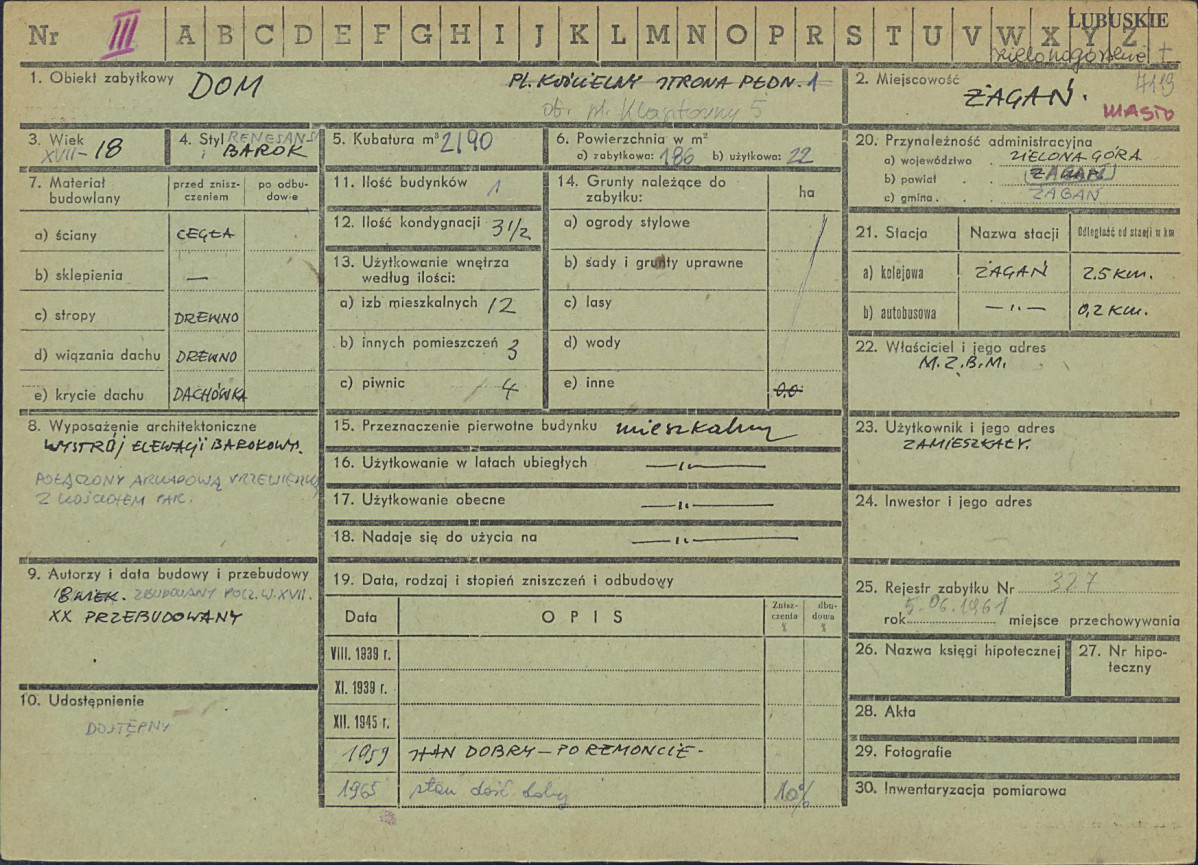 Nr III A B C D E F G H I J K L M N O P R S T U V W X Y Z LUBUSKIE
zielonogórskie +
1. Obiekt zabytkowy DOM PL. KOŚCIELNY STRONA PŁDN. 1
ob. pl. Klasztorny 5
2. Miejscowość 4119
ŻAGAŃ.
MIASTO
3. Wiek
XVII-18
4. Styl RENESANS
i BAROK
5. Kubatura m³ 2190
6. Powierzchnia w m²
a) zabytkowa: 186 b) użytkowa: 22
7. Materiał budowlany
przed znisz-
czeniem
po odbu-
dowie
a) ściany CEGŁA
b) sklepienia —
c) stropy DREWNO
d) wiązania dachu DREWNO
e) krycie dachu DACHÓWKA
8. Wyposażenie architektoniczne
WYSTRÓJ ELEWACJI BAROKOWY.
POŁĄCZONY ARKADOWĄ
Z KOŚCIOŁEM PAR.
9. Autorzy i data budowy i przebudowy
18 WIEK. ZBUDOWANY POCZ. W. XVII.
XX PRZEBUDOWANY
10. Udostępnienie
DOSTĘPNY
11. Ilość budynków 1
12. Ilość kondygnacji 3 1/2
13. Użytkowanie wnętrza
według ilości:
a) izb mieszkalnych 12
b) innych pomieszczeń 3
c) piwnic 4
14. Grunty należące do
zabytku:
ha
a) ogrody stylowe
b) sady i grunty uprawne
c) lasy
d) wody
e) inne 0.0
15. Przeznaczenie pierwotne budynku mieszkalny
16. Użytkowanie w latach ubiegłych —"—
17. Użytkowanie obecne —"—
18. Nadaje się do użycia na —"—
19. Data, rodzaj i stopień zniszczeń i odbudowy
Data
OPIS
Znisz-
czenia
%
dbu-
dowa
%
VIII. 1939 r.
XI. 1939 r.
XII. 1945 r.
1959 STAN DOBRY – PO REMONCIE -
1965 stan dość dobry 10%
20. Przynależność administracyjna
a) województwo . ZIELONA GÓRA
b) powiat . . ŻAGAŃ
c) gmina . . ŻAGAŃ
21. Stacja
Nazwa stacji
Odległość od stacji w km
a) kolejowa ŻAGAŃ 2.5 KM.
b) autobusowa —"— 0,2 KM.
22. Właściciel i jego adres
M.Z.B.M.
23. Użytkownik i jego adres
ZAMIESZKAŁY.
24. Inwestor i jego adres
25. Rejestr zabytku Nr 327
rok 5.06.1961 miejsce przechowywania
26. Nazwa księgi hipotecznej
27. Nr hipo-
teczny
28. Akta
29. Fotografie
30. Inwentaryzacja pomiarowa